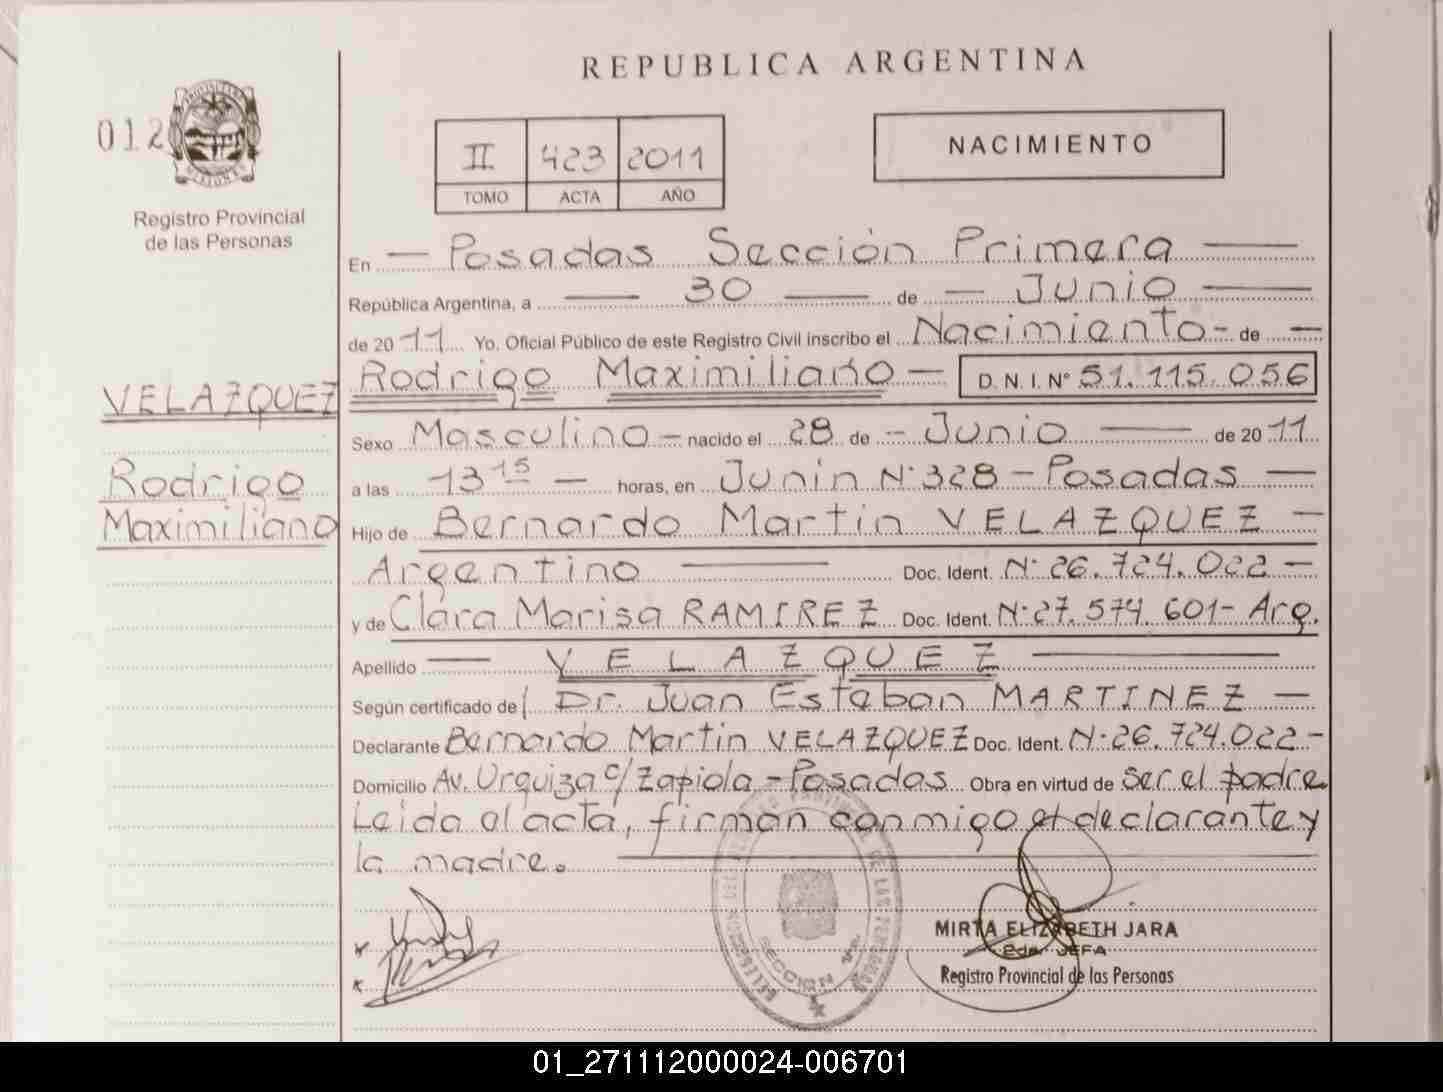 REPUBLICA ARGENTINA
012
II 423 2011
TOMO ACTA AÑO
NACIMIENTO
Registro Provincial
de las Personas
En — Posadas Sección Primera —
República Argentina, a — 30 — de — Junio —
de 2011 Yo, Oficial Público de este Registro Civil inscribo el Nacimiento - de —
Rodrigo Maximiliano — D.N.I. Nº 51.115.056
VELAZQUEZ
Rodrigo
Maximiliano
Sexo Masculino — nacido el 28 de — Junio — de 2011
a las 13 15 — horas, en Junin Nº 328 - Posadas —
Hijo de Bernardo Martin VELAZQUEZ —
Argentino — Doc. Ident. Nº 26.724.022 —
y de Clara Marisa RAMIREZ Doc. Ident. Nº 27.574.601- Arg.
Apellido — VELAZQUEZ —
Según certificado de / Dr. Juan Esteban MARTINEZ —
Declarante Bernardo Martin VELAZQUEZ Doc. Ident. Nº 26.724.022 -
Domicilio Av. Urquiza c/ Zapiola - Posadas Obra en virtud de ser el padre
Leida el acta, firman conmigo el declarante y
la madre.
MIRTA ELIZABETH JARA
2da. JEFA
Registro Provincial de las Personas
SECCION 1ª
01_271112000024-006701